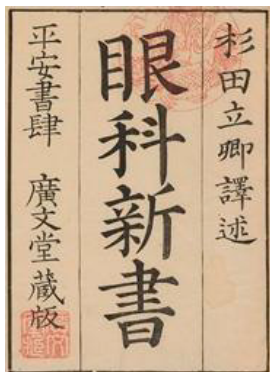 杉田立卿譯述
眼科新書
平安書肆 廣文堂藏版